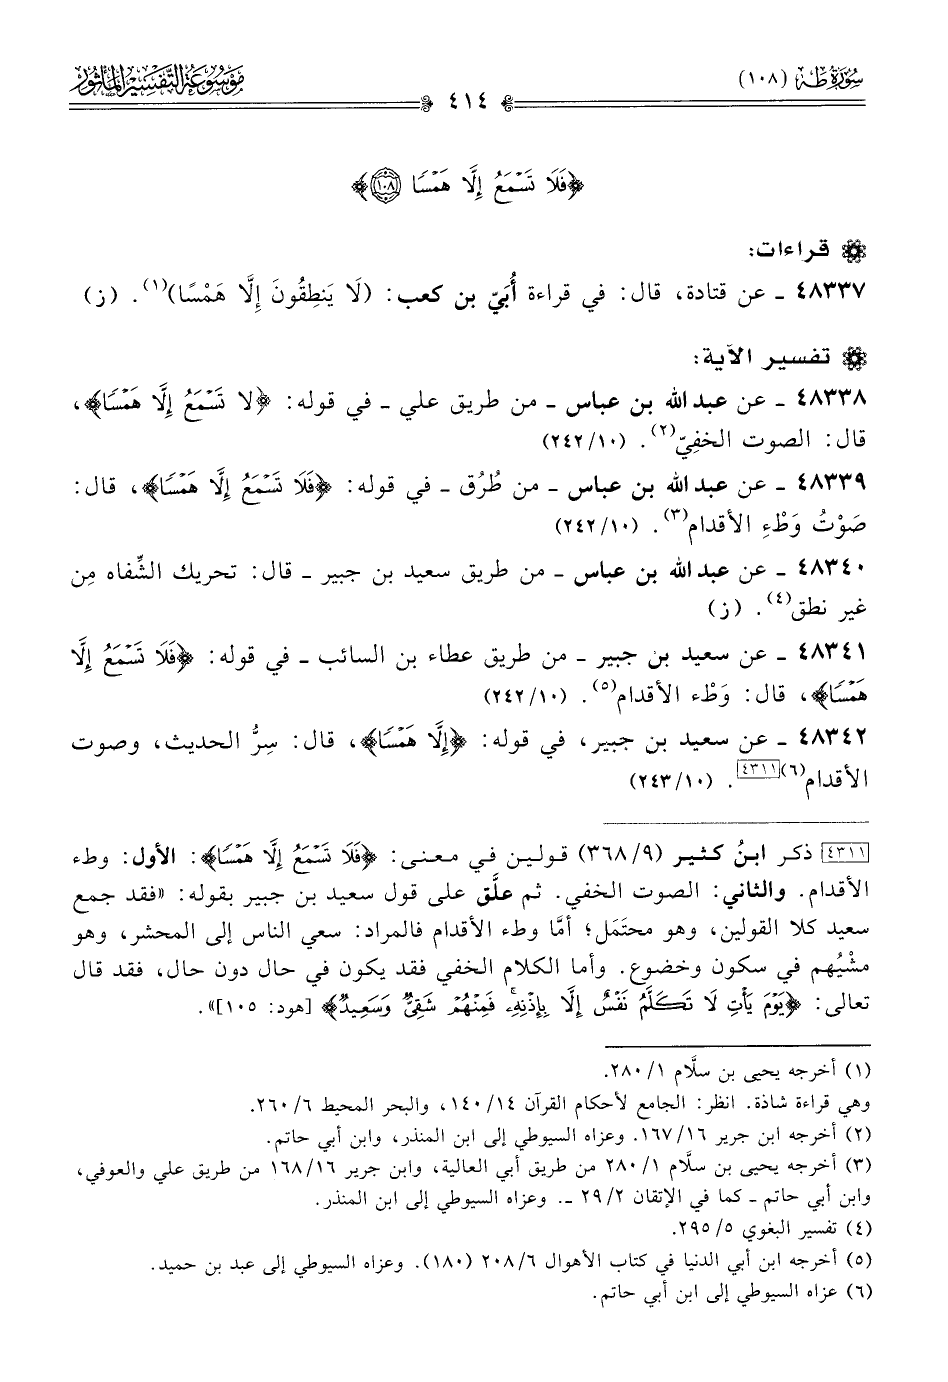 سُورَةُ طه (١٠٨)
موسوعة التفسير المأثور
٤١٤
﴿فَلَا تَسْمَعُ إِلَّا هَمْسًا ١٠٨﴾
قراءات:
٤٨٣٣٧ ـ عن قتادة، قال: في قراءة أُبَيّ بن كعب: (لَا يَنطِقُونَ إِلَّا هَمْسًا)(١). (ز)
تفسير الآية:
٤٨٣٣٨ ـ عن عبد الله بن عباس ـ من طريق علي ـ في قوله: ﴿لا تَسْمَعُ إِلَّا هَمْسًا﴾،
قال: الصوت الخفِيّ(٢). (١٠/٢٤٢)
٤٨٣٣٩ ـ عن عبد الله بن عباس ـ من طُرُق ـ في قوله: ﴿فَلَا تَسْمَعُ إِلَّا هَمْسًا﴾، قال:
صَوْتُ وَطْءِ الأقدام(٣). (١٠/٢٤٢)
٤٨٣٤٠ ـ عن عبد الله بن عباس ـ من طريق سعيد بن جبير ـ قال: تحريك الشِّفاه مِن
غير نطق(٤). (ز)
٤٨٣٤١ ـ عن سعيد بن جبير ـ من طريق عطاء بن السائب ـ في قوله: ﴿فَلَا تَسْمَعُ إِلَّا
هَمْسًا﴾، قال: وَطْء الأقدام(٥). (١٠/٢٤٢)
٤٨٣٤٢ ـ عن سعيد بن جبير، في قوله: ﴿إِلَّا هَمْسًا﴾، قال: سِرُّ الحديث، وصوت
الأقدام(٦)[٤٣١١]. (١٠/٢٤٣)
[٤٣١١] ذكر ابنُ كثير (٩/٣٦٨) قولين في معنى: ﴿فَلَا تَسْمَعُ إِلَّا هَمْسًا﴾: الأول: وطء
الأقدام. والثاني: الصوت الخفي. ثم علَّق على قول سعيد بن جبير بقوله: «فقد جمع
سعيد كلا القولين، وهو محتَمَل؛ أمَّا وطء الأقدام فالمراد: سعي الناس إلى المحشر، وهو
مشْيُهم في سكون وخضوع. وأما الكلام الخفي فقد يكون في حال دون حال، فقد قال
تعالى: ﴿يَوْمَ يَأْتِ لَا تَكَلَّمُ نَفْسٌ إِلَّا بِإِذْنِهِۦ ۚ فَمِنْهُمْ شَقِيٌّ وَسَعِيدٌ﴾ [هود: ١٠٥]».
(١) أخرجه يحيى بن سلَّام ١/ ٢٨٠.
وهي قراءة شاذة. انظر: الجامع لأحكام القرآن ١٤/ ١٤٠، والبحر المحيط ٦/ ٢٦٠.
(٢) أخرجه ابن جرير ١٦/ ١٦٧. وعزاه السيوطي إلى ابن المنذر، وابن أبي حاتم.
(٣) أخرجه يحيى بن سلَّام ١/ ٢٨٠ من طريق أبي العالية، وابن جرير ١٦/ ١٦٨ من طريق علي والعوفي،
وابن أبي حاتم ـ كما في الإتقان ٢/ ٢٩ ـ. وعزاه السيوطي إلى ابن المنذر.
(٤) تفسير البغوي ٥/ ٢٩٥.
(٥) أخرجه ابن أبي الدنيا في كتاب الأهوال ٦/ ٢٠٨ (١٨٠). وعزاه السيوطي إلى عبد بن حميد.
(٦) عزاه السيوطي إلى ابن أبي حاتم.